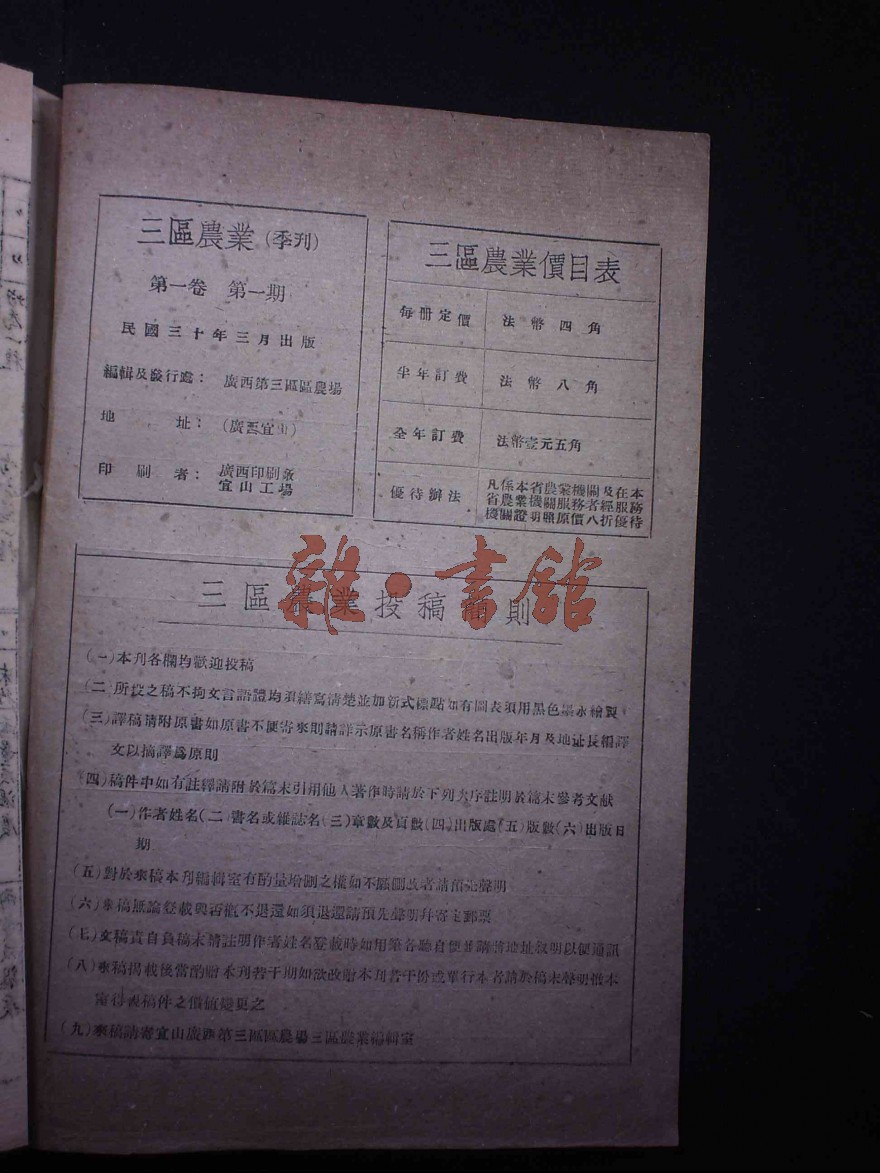 三區農業(季刊)
第一卷 第一期
民國三十年三月出版
編輯及發行處： 廣西第三區區農場
地址： (廣西宜山)
印刷者： 廣西印刷廠
宜山工場
三區農業價目表
每冊定價 法幣四角
半年訂費 法幣八角
全年訂費 法幣壹元五角
優待辦法 凡係本省農業機關及在本
省農業機關服務者經服務
機關證明照原價八折優待
雜·書館
三區農業投稿簡則
(一)本刊各欄均歡迎投稿
(二)所投之稿不拘文言語體均須繕寫清楚並加新式標點如有圖表須用黑色墨水繪製
(三)譯稿請附原書如原書不便寄來則請詳示原書名稱作者姓名出版年月及地址長編譯
文以摘譯爲原則
(四)稿件中如有註釋請附於篇末引用他人著作時請於下列次序註明於篇末參考文献
(一)作者姓名(二)書名或雜誌名(三)章數及頁數(四)出版處(五)版數(六)出版日
期
(五)對於來稿本刊編輯室有酌量增刪之權如不願刪改者請預先聲明
(六)來稿無論登載與否概不退還如須退還請預先聲明幷寄足郵票
(七)文稿責自負稿末請註明作者姓名登載時如用筆名聽自便並請將地址叙明以便通訊
(八)來稿揭載後當酌贈本刊若干期如欲改贈本刊若干份或單行本者請於稿末聲明惟本
室得視稿件之價値變更之
(九)來稿請寄宜山廣西第三區區農場三區農業編輯室